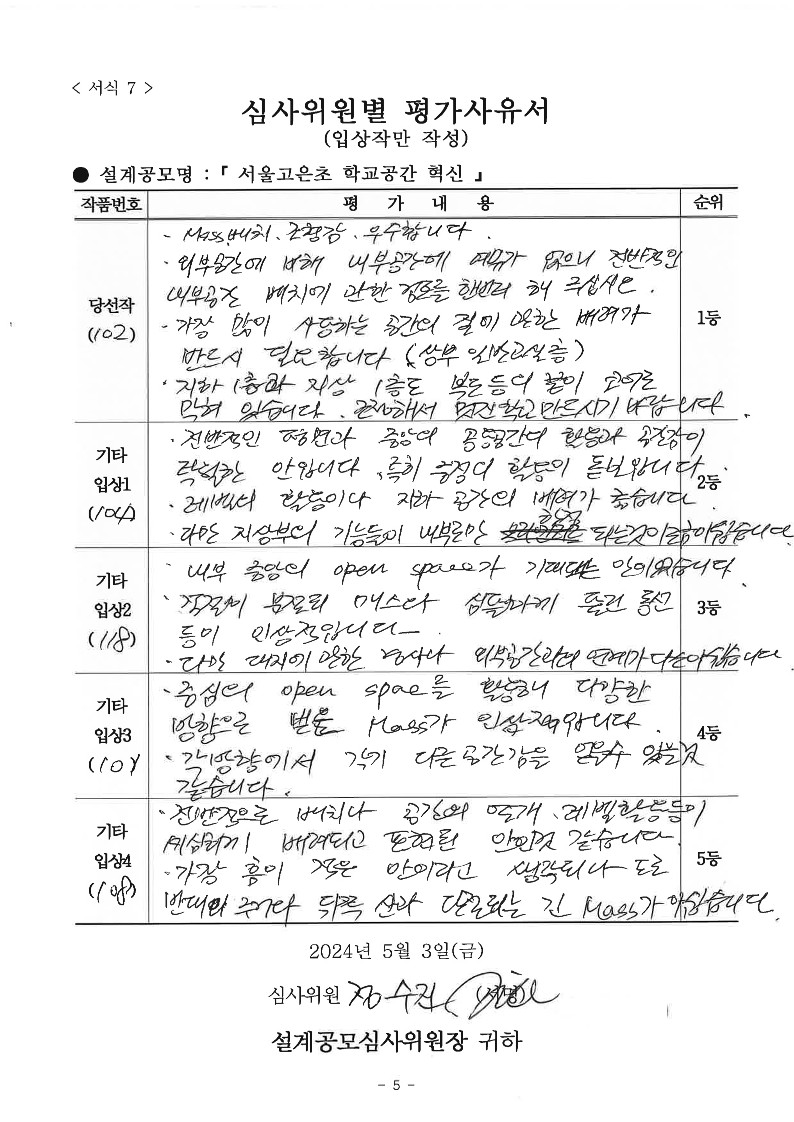 < 서식 7 >
심사위원별 평가사유서
(입상작만 작성)
● 설계공모명 : 『 서울고은초 학교공간 혁신 』
작품번호 평 가 내 용 순위
당선작 (102) 1등
- Mass 배치, 조형감, 우수합니다.
· 외부공간에 비해 내부공간에 여유가 없으니 전반적인
내부공간 배치에 관한 검토를 한번더 해 주십시오.
- 가장 많이 사용하는 공간의 질에 대한 배려가
반드시 필요합니다 (상부 일반교실층)
· 지하 1층과 지상 1층도 복도등의 끝이 코어로
막혀 있습니다. 멋진학교 만드시기 바랍니다.
기타 입상1 (104) 2등
· 전반적인 평면과 중앙의 공용공간의 활용과 공간감이
탁월한 안입니다. 특히 중정의 활용이 돋보입니다.
· 레벨의 활용이나 지하 공간의 배려가 좋습니다
· 다만 지상부의 기능들이 내부로만 되는것이 아쉽습니다
기타 입상2 (118) 3등
· 내부 중앙의 open space가 기대되는 안이었습니다.
· 적절히 분절된 매스와 뚫린 동선
등이 인상적입니다
· 다만 대지에 대한 외부공간과의 연계가 다소 아쉽습니다
기타 입상3 (101) 4등
· 중심의 open spae를 활용해 다양한
방향으로 뻗은 Mass가 인상적입니다.
· 각방향에서 각기 다른 공간감을 얻을수 있는것
같습니다.
기타 입상4 (108) 5등
· 전반적으로 배치나 공간의 전개, 레벨활용등이
세심하게 배려되고 표현된 안인것 같습니다.
· 가장 흠이 적은 안이라고 생각되나 도로
반대의 주거나 뒤쪽 산과 단절되는 긴 Mass가 아쉽습니다.
2024년 5월 3일(금)
심사위원 정수진 (서명)
설계공모심사위원장 귀하
- 5 -